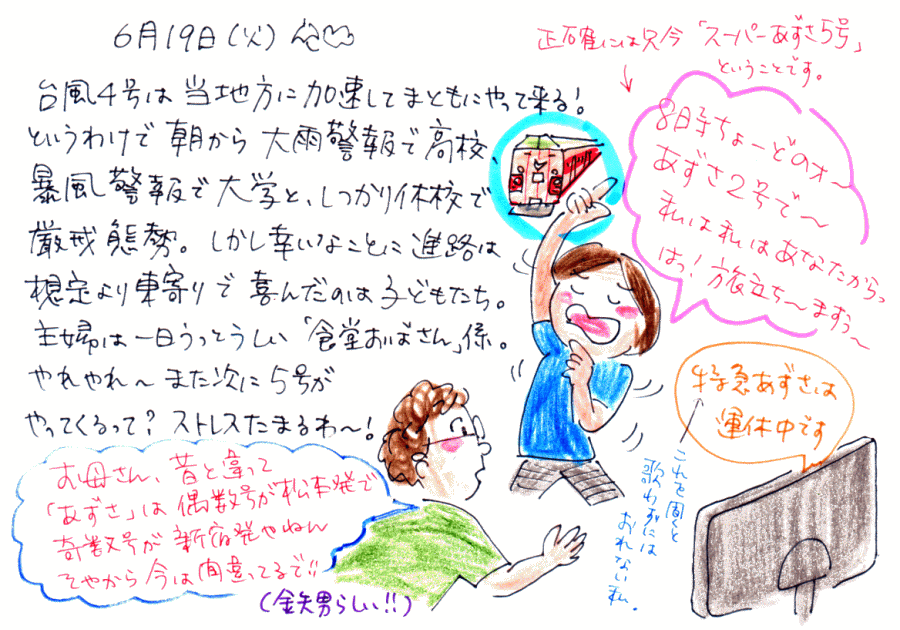 6月19日(火)
台風4号は当地方に加速してまともにやって来る!
というわけで朝から大雨警報で高校、
暴風警報で大学と、しっかり休校で
厳戒態勢。しかし幸いなことに進路は
想定より東寄りで喜んだのは子どもたち。
主婦は一日うっとうしい「食堂おばさん」係。
やれやれ〜また次に5号が
やってくるって?ストレスたまるわ〜!
正確には只今「スーパーあずさ5号」
ということです。
8時ちょーどのォ〜
あずさ2号で〜
私は私はあなたからっ
はっ!旅立ち〜ますぅ〜
特急あずさは
運休中です
これを聞くと
歌わずには
おれない私。
お母さん、昔と違って
「あずさ」は偶数号が松本発で
奇数号が新宿発やねん
そやから今は間違ってるで!!
(鉄男らしい!!)